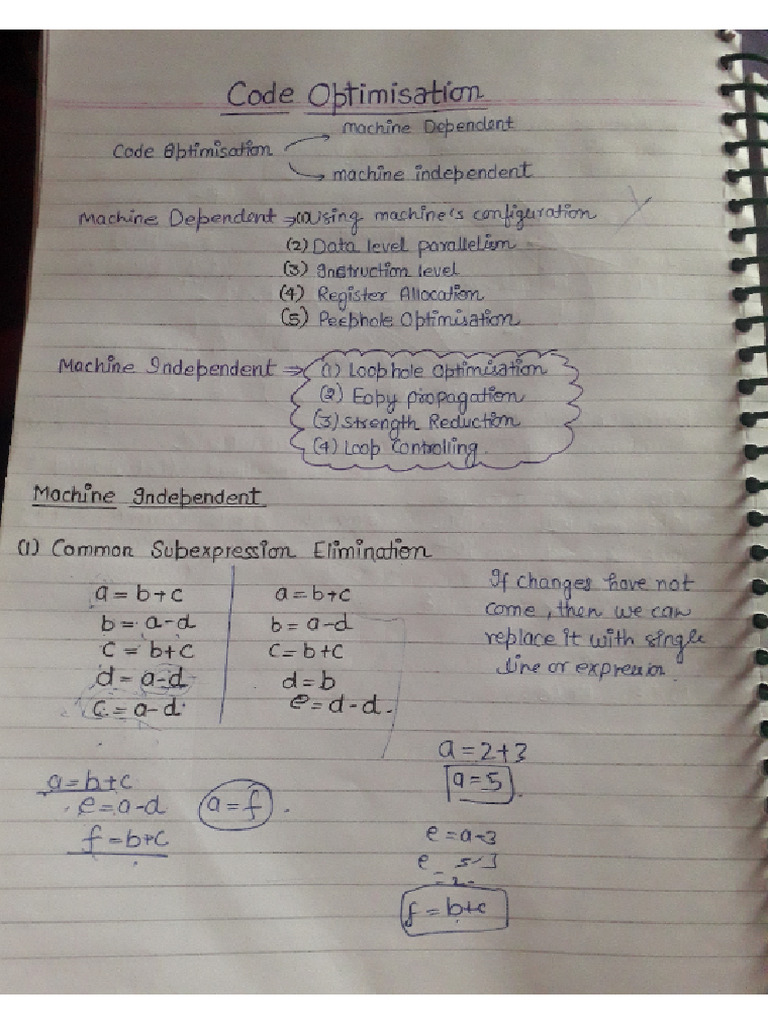 Code Optimisation
Code Optimisation
machine Dependent
machine independent
Machine Dependent ⇒ (1) using machine's configuration
(2) Data level parallelism
(3) Instruction level
(4) Register Allocation
(5) Peephole Optimisation
Machine Independent ⇒ (1) Loophole Optimisation
(2) Copy propagation
(3) Strength Reduction
(4) Loop Controlling.
Machine Independent
(1) Common Subexpression Elimination
a = b+c
b = a-d
c = b+c
d = a-d
c = a-d
a = b+c
b = a-d
c = b+c
d = b
e = d-d.
If changes have not
come, then we can
replace it with single
line or expression.
a = b+c
e = a-d
f = b+c
a = f
a = 2+3
a = 5
e = a-3
e 5-3
= 2
f = b+c